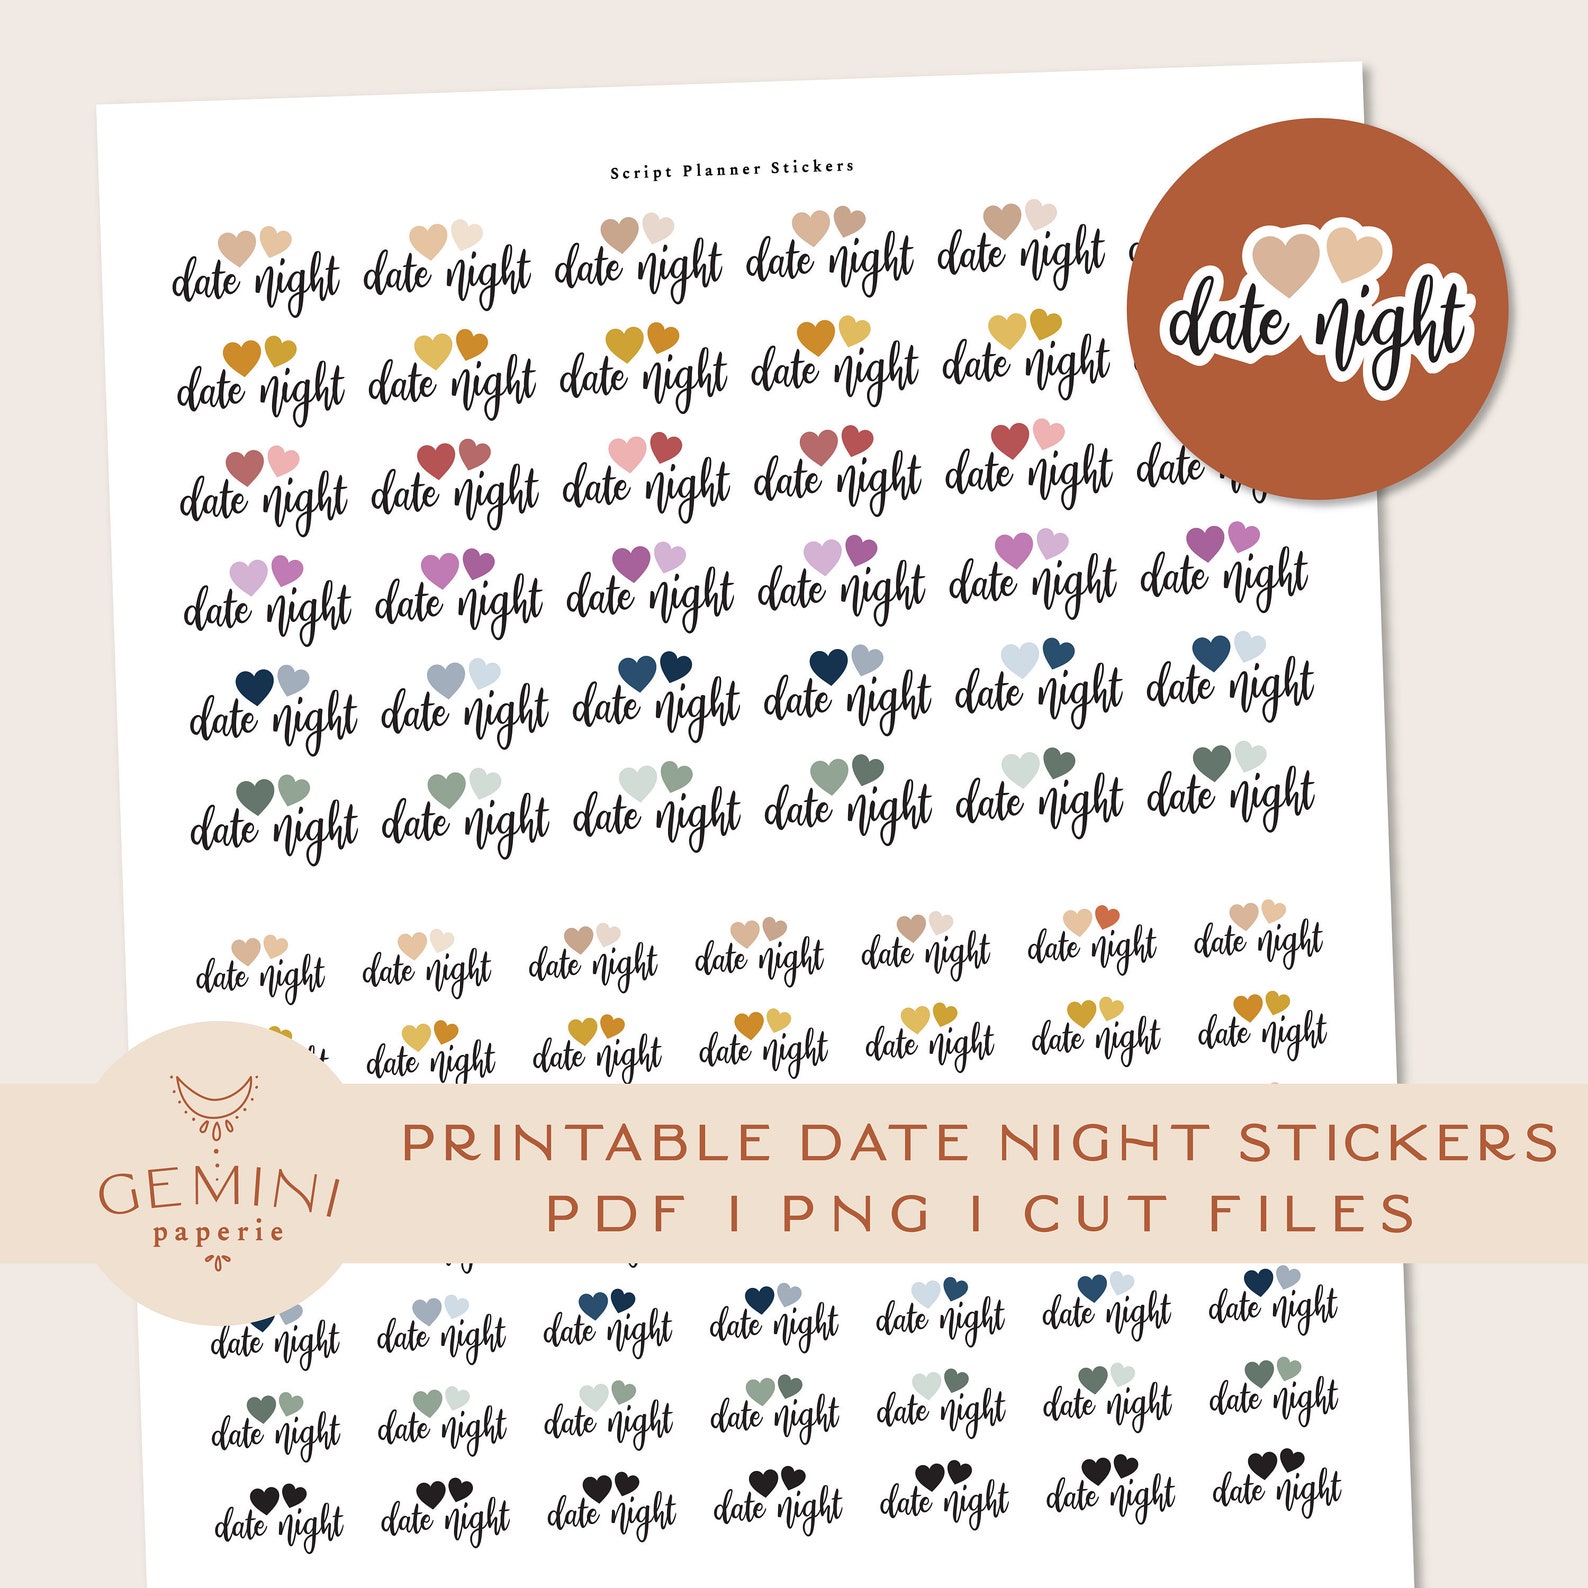 Script Planner Stickers
date night date night date night date night date night
date night
date night date night date night date night date night
date night date night date night date night date night date
date night date night date night date night date night date night
date night date night date night date night date night date night
date night date night date night date night date night date night
date night date night date night date night date night date night date night
date night date night date night date night date night date night
PRINTABLE DATE NIGHT STICKERS
PDF | PNG | CUT FILES
GEMINI
paperie
date night date night date night date night date night date night date night
date night date night date night date night date night date night date night
date night date night date night date night date night date night date night